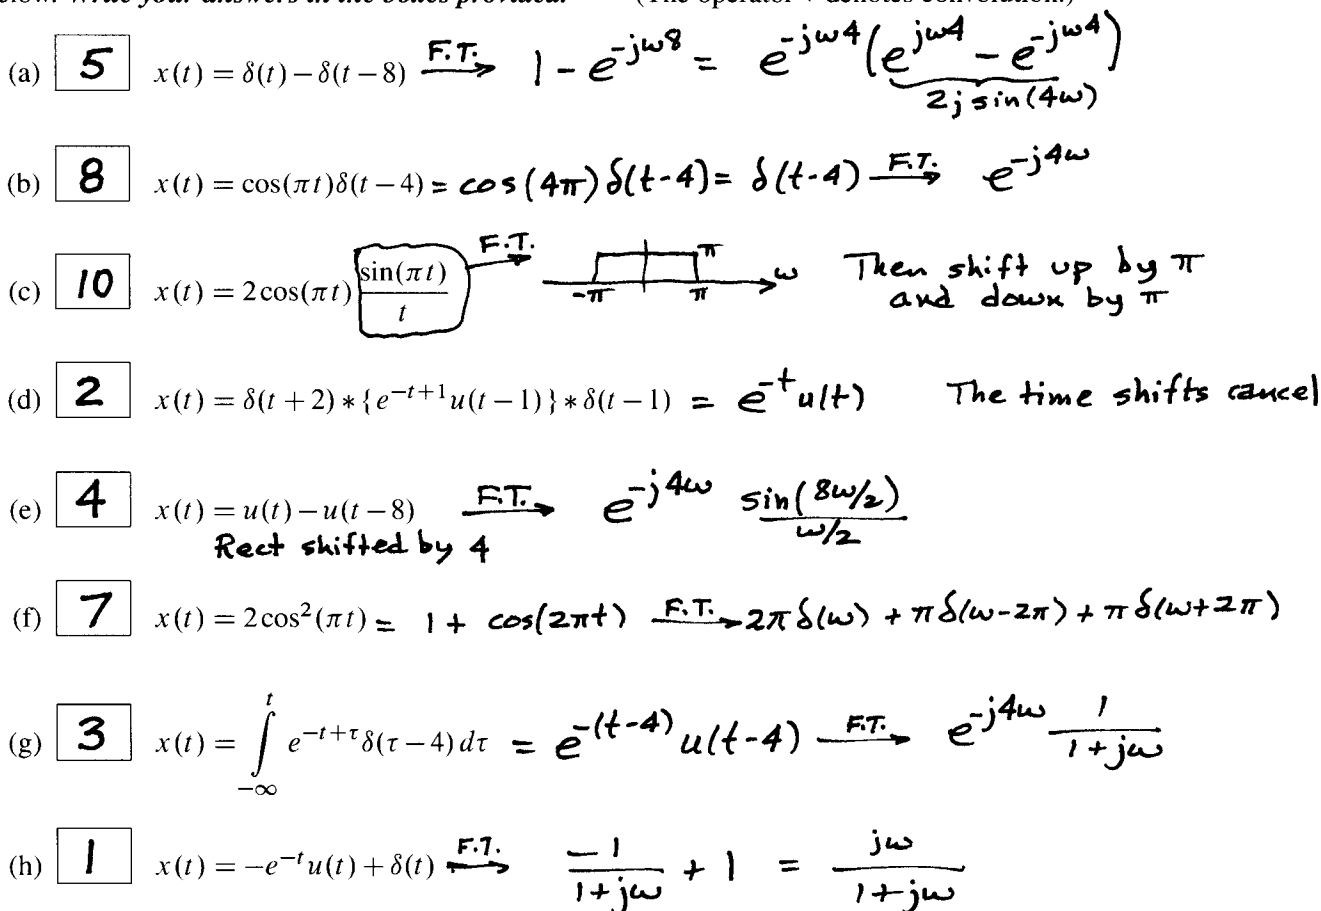 below. Write your answers in the boxes provided. (The operator * denotes convolution.)
(a) 5 x(t) = δ(t) − δ(t − 8) F.T.→ 1 − e^{-jω8} = e^{-jω4}(e^{jω4} − e^{-jω4})
2j sin(4ω)
(b) 8 x(t) = cos(πt)δ(t − 4) = cos(4π)δ(t-4) = δ(t-4) F.T.→ e^{-j4ω}
(c) 10 x(t) = 2cos(πt) sin(πt)/t F.T.→ -π π π ω Then shift up by π
and down by π
(d) 2 x(t) = δ(t + 2) ∗ {e^{−t+1}u(t − 1)} ∗ δ(t − 1) = e^{-t}u(t) The time shifts cancel
(e) 4 x(t) = u(t) − u(t − 8) F.T.→ e^{-j4ω} sin(8ω/2)/(ω/2)
Rect shifted by 4
(f) 7 x(t) = 2cos²(πt) = 1 + cos(2πt) F.T.→ 2πδ(ω) + πδ(ω-2π) + πδ(ω+2π)
(g) 3 x(t) = ∫_{−∞}^{t} e^{−t+τ}δ(τ − 4)dτ = e^{-(t-4)}u(t-4) F.T.→ e^{-j4ω} 1/(1+jω)
(h) 1 x(t) = −e^{−t}u(t) + δ(t) F.T.→ -1/(1+jω) + 1 = jω/(1+jω)